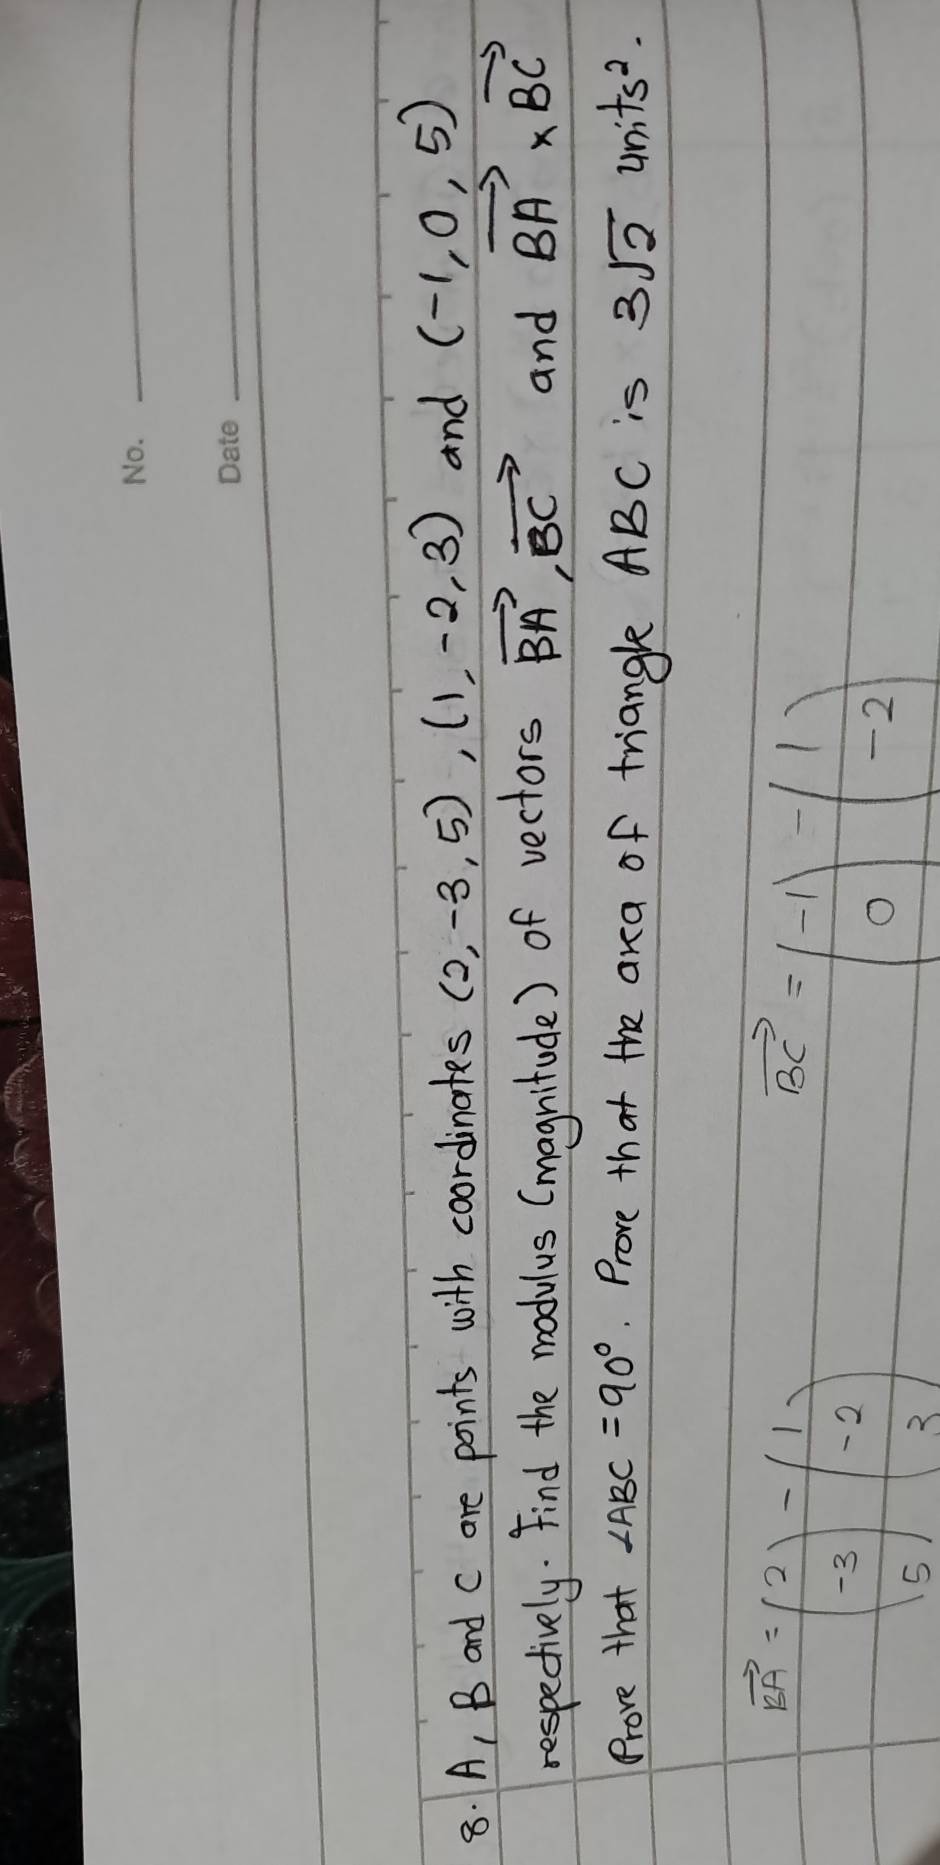 No.
Date
8. A, B and C are points with coordinates (2, -3, 5), (1, -2, 3) and (-1, 0, 5)
respectively. Find the modulus (magnitude) of vectors BA→, BC→ and BA→ × BC→
Prove that ∠ABC = 90°. Prove that the area of triangle ABC is 3√2 units².
BA→ = (2) - (1) BC→ = (-1) - (1)
(-3) (-2) (0) (-2)
(5) (3)